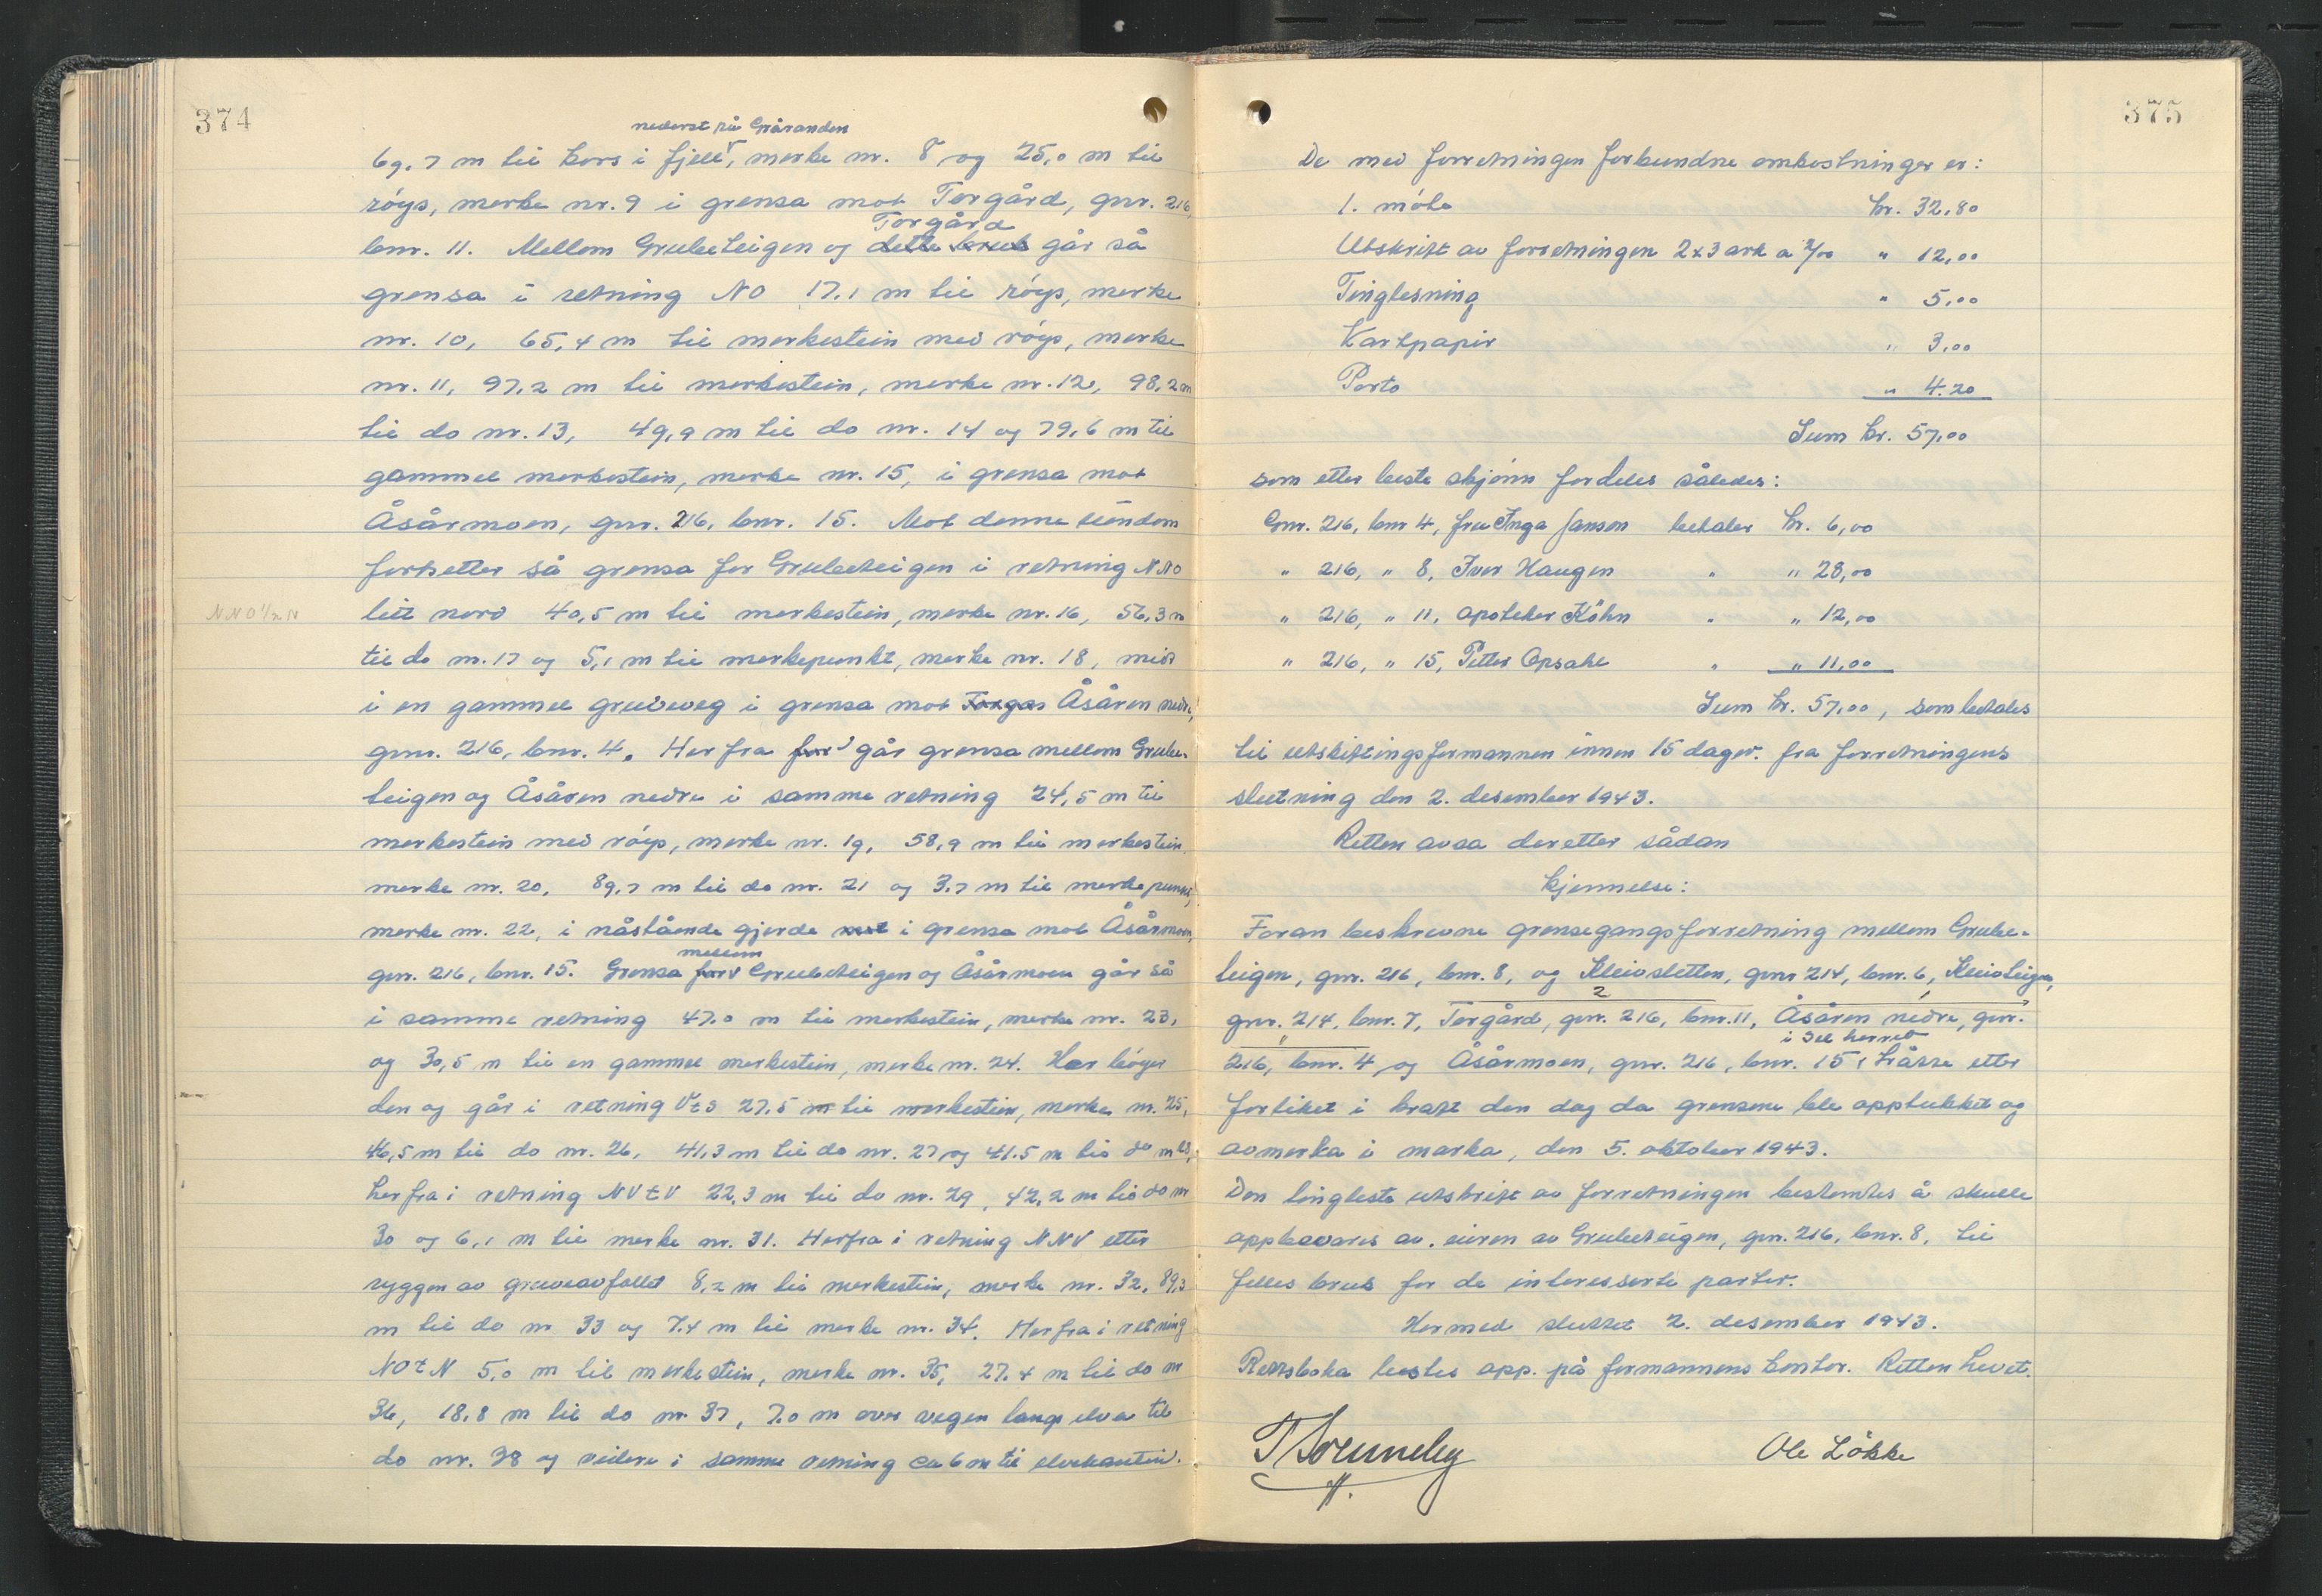 374
nederst på Gråranden
69.7 m til kors i fjell, merke nr. 8 og 25,0 m til
röys, merke nr. 9 i grensa mot Torgård, gnr. 216,
Torgård
bnr. 11. Mellom Grubeteigen og dette bruk går så
grensa i retning NO 17.1 m til röys, merke
nr. 10, 65,4 m til merkestein med röys, merke
nr. 11, 97,2 m til merkestein, merke nr. 12, 98,2 m
til do nr. 13, 49,9 m til do nr. 14 og 79,6 m til
gammel merkestein, merke nr. 15, i grensa mot
Åsårmoen, gnr. 216, bnr. 15. Mot denne eiendom
fortsetter så grensa for Grubeteigen i retning NNO
NNO 1/2 N
litt nord 40,5 m til merkestein, merke nr. 16, 56,3 m
til do nr. 17 og 5,1 m til merkepunkt, merke nr. 18, midt
i en gammel gruveveg i grensa mot Torgar Åsåren nedre,
gnr. 216, bnr. 4. Her fra for går grensa mellom Grube-
teigen og Åsåren nedre i samme retning 24,5 m til
merkestein med röys, merke nr. 19, 58,9 m til merkestein
merke nr. 20, 89,7 m til do nr. 21 og 3.7 m til merkepunkt,
merke nr. 22, i nåstående gjerde mot i grensa mot Åsårmoen,
mellom
gnr. 216, bnr. 15. Grensa for Grubeteigen og Åsårmoen går så
i samme retning 47.0 m til merkestein, merke nr. 23,
og 30,5 m til en gammel merkestein, merke nr. 24. Her böyer
den og går i retning VtS 27.5 m til merkestein, merke nr. 25,
46,5 m til do nr. 26, 41,3 m til do nr. 27 og 41.5 m til do nr 28,
herfra i retning NVtV 22,3 m til do nr. 29, 42,2 m til do nr
30 og 6,1 m til merke nr. 31. Herfra i retning NNV etter
ryggen av gruveavfallet 8,2 m til merkestein, merke nr. 32, 89,3
m til do nr 33 og 7.4 m til merke nr. 34. Herfra i retning
NOtN 5,0 m til merkestein, merke nr. 35, 27.4 m til do nr
36, 18,8 m til do nr 37, 7.0 m over vegen langs elva til
do nr. 38 og videre i samme retning ca 6 m til elvekanten.
375
De med forretningen forbundne omkostninger er:
1. möte kr. 32,80
Utskrift av forretningen 2x3 ark a 2/00 " 12,00
Tinglesning " 5,00
Kartpapir " 3,00
Porto " 4.20
Sum kr. 57,00
som etter beste skjönn fordeles således:
Gnr. 216, bnr 4, fru Inga Jansen betaler kr. 6,00
" 216, " 8, Iver Haugen " " 28,00
" 216, " 11, apoteker Köhn " " 12,00
" 216, " 15, Petter Opsahl " " 11,00
Sum kr. 57,00, som betales
til utskiftingsformannen innen 15 dager fra forretningens
slutning den 2. desember 1943.
Retten avsa deretter sådan
kjennelse:
Foran beskrevne grensegangsforretning mellom Grube-
teigen, gnr. 216, bnr. 8, og Kleivsletten, gnr 214, bnr. 6, Kleivteigen,
2
gnr. 214, bnr. 7, Torgård, gnr. 216, bnr. 11, Åsåren nedre, gnr.
i Sel herred
216, bnr. 4 og Åsårmoen, gnr. 216, bnr. 15, trådte etter
forliket i kraft den dag da grensene ble oppstukket og
avmerka i marka, den 5. oktober 1943.
Den tingleste utskrift av forretningen bestemtes å skulle
oppbevares av eieren av Grubeteigen, gnr. 216, bnr. 8, til
felles bruk for de interesserte parter.
Hermed sluttet 2. desember 1943.
Rettsboka lestes opp på formannens kontor. Retten hevet.
Ole Lökke